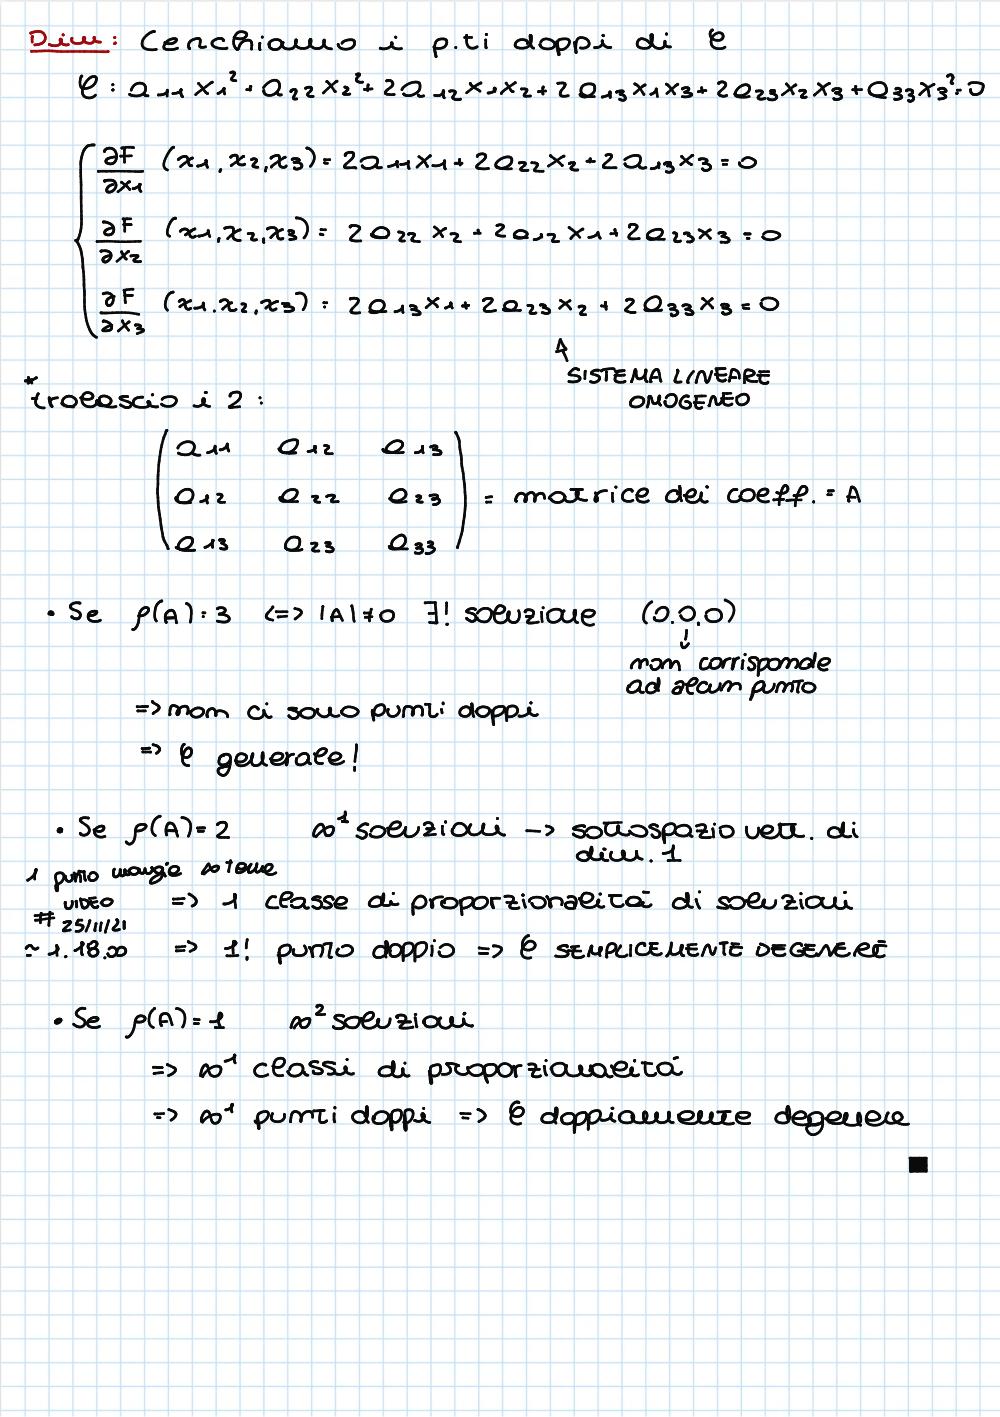 Dim: Cerchiamo i p.ti doppi di C
C: a₁₁x₁² + a₂₂x₂² + 2a₁₂x₁x₂ + 2a₁₃x₁x₃ + 2a₂₃x₂x₃ + a₃₃x₃² = 0
∂F/∂x₁ (x₁, x₂, x₃) = 2a₁₁x₁ + 2a₂₂x₂ + 2a₁₃x₃ = 0
∂F/∂x₂ (x₁, x₂, x₃) = 2a₂₂x₂ + 2a₁₂x₁ + 2a₂₃x₃ = 0
∂F/∂x₃ (x₁, x₂, x₃) = 2a₁₃x₁ + 2a₂₃x₂ + 2a₃₃x₃ = 0
↑ SISTEMA LINEARE
OMOGENEO
* tralascio i 2:
a₁₁ a₁₂ a₁₃
a₁₂ a₂₂ a₂₃ = matrice dei coeff. = A
a₁₃ a₂₃ a₃₃
• Se ρ(A) = 3 <=> |A| ≠ 0 ∃! soluzione (0,0,0)
↓
non corrisponde
ad alcun punto
=> non ci sono punti doppi
=> C generale!
• Se ρ(A) = 2 ∞¹ soluzioni -> sottospazio vett. di
dim. 1
1 punto mangia ∞ terne
=> 1 classe di proporzionalità di soluzioni
# VIDEO
25/11/21
~ 1.18.00
=> 1! punto doppio => C SEMPLICEMENTE DEGENERE
• Se ρ(A) = 1 ∞² soluzioni
=> ∞¹ classi di proporzionalità
=> ∞¹ punti doppi => C doppiamente degenere
■